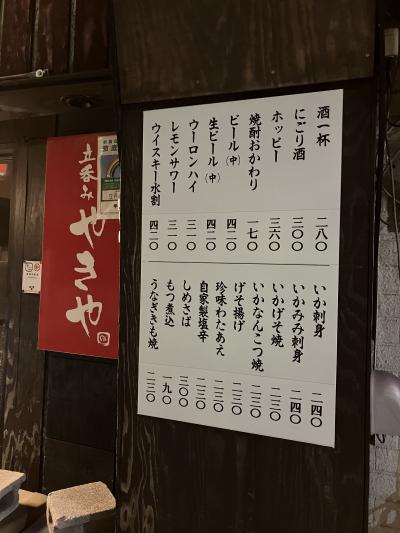 酒一杯 二八〇
にごり酒 三〇〇
ホッピー 三六〇
焼酎おかわり 一七〇
ビール(中) 四二〇
生ビール(中) 四二〇
ウーロンハイ 三一〇
レモンサワー 三一〇
ウイスキー水割 四二〇
いか刺身 二四〇
いかみみ刺身 二四〇
いかげそ焼 二三〇
いかなんこつ焼 二三〇
げそ揚げ 二三〇
珍味わたあえ 二三〇
自家製塩辛 二三〇
しめさば 三〇〇
もつ煮込 一九〇
うなぎきも焼 二三〇
立呑み
やきや